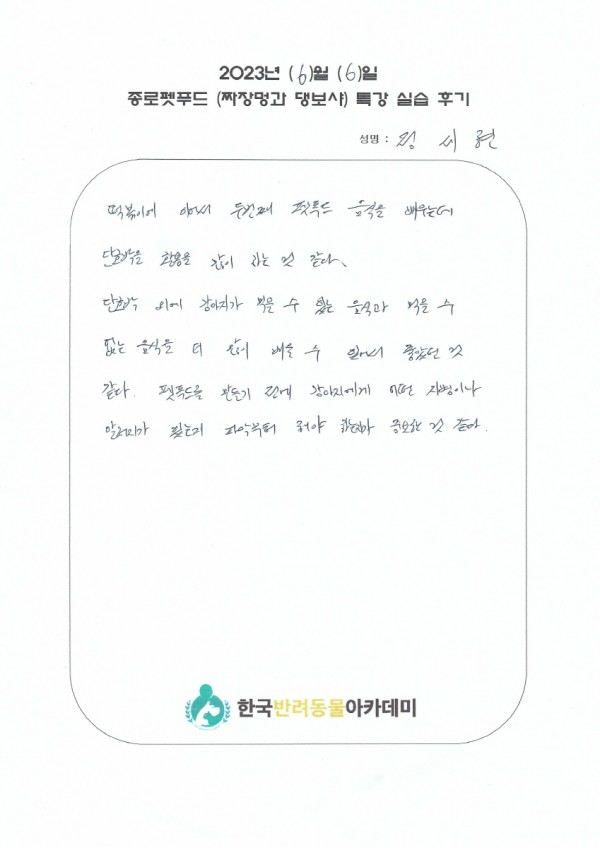 2023년 (6)월 (6)일
종로펫푸드 (짜장멍과 댕보샤) 특강 실습 후기
성명 : 정 시 련
떡볶이에 이어서 두번째 펫푸드 음식을 배우는데
단호박을 활용을 많이 하는 것 같다.
단호박 외에 강아지가 먹을 수 있는 음식과 먹을 수
없는 음식을 더 많이 배울 수 있어서 좋았던 것
같다. 펫푸드를 만들기 전에 강아지에게 어떤 질병이나
알러지가 있는지 파악부터 해야 중요한 것 같다.
한국반려동물아카데미